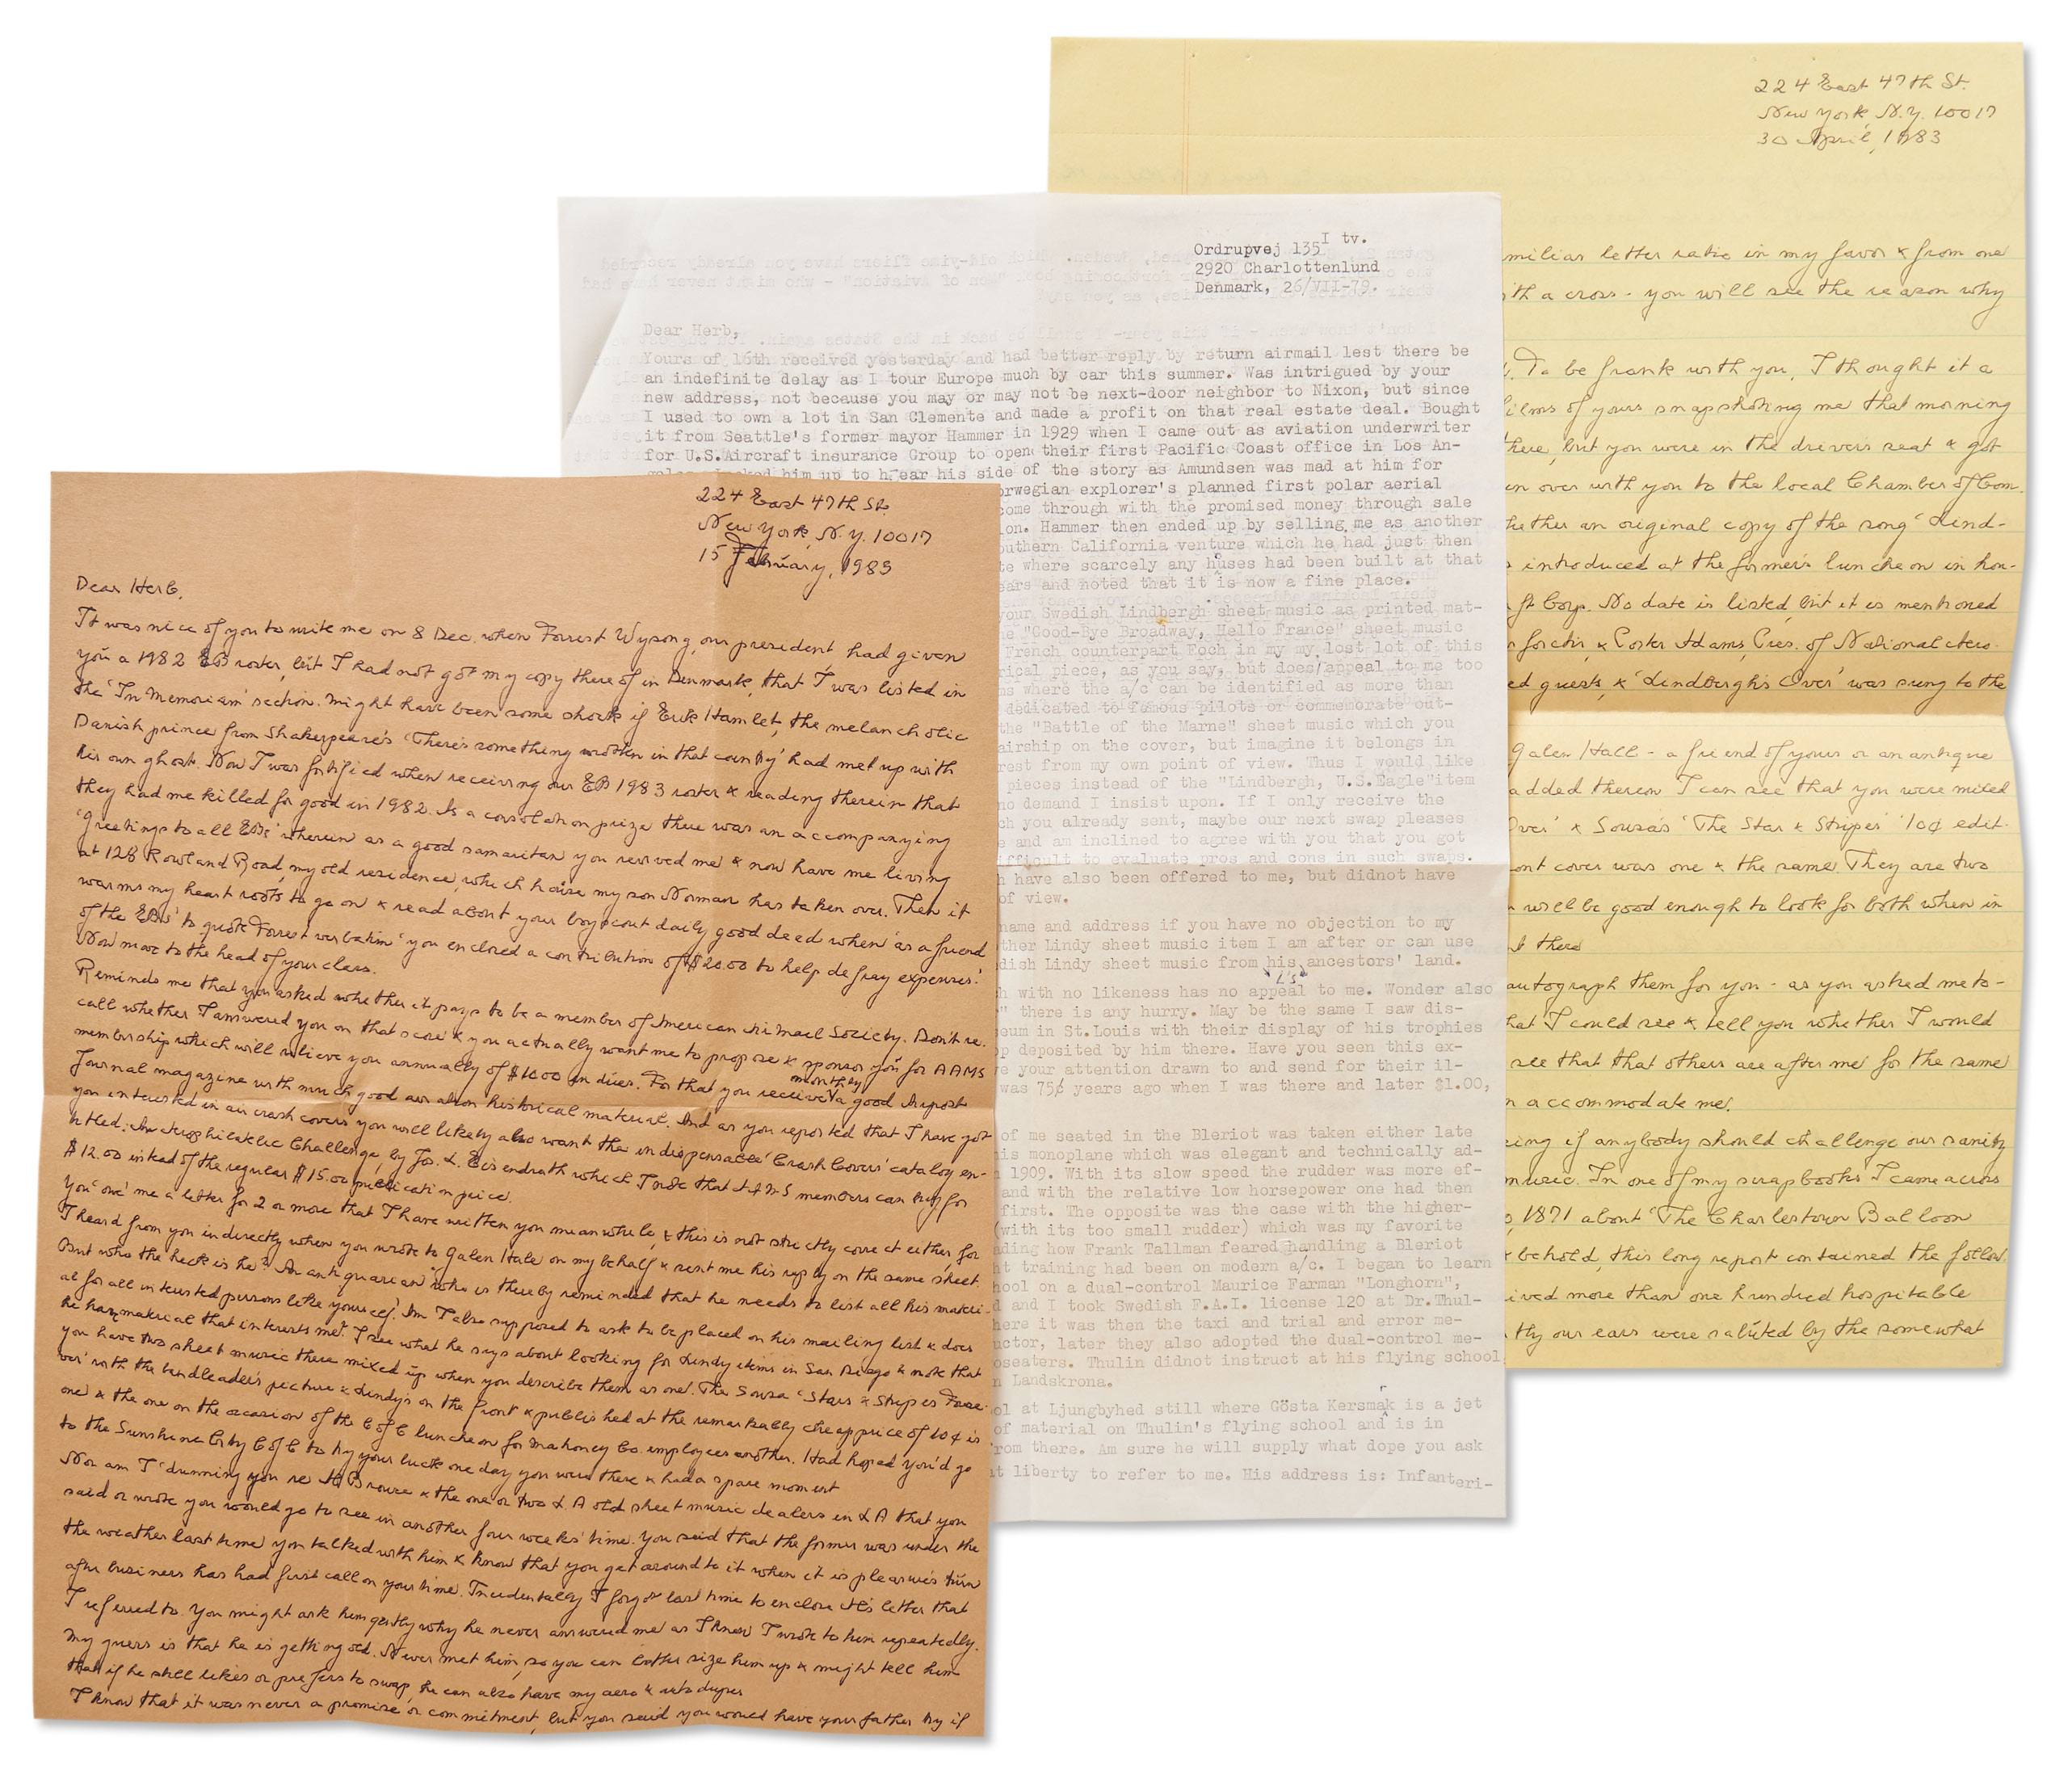 224 East 47th St.
New York, N.Y. 10017
15 February, 1983
Dear Herb,
It was nice of you to write me on 8 Dec. when Forrest Wysong, our president, had given
you a 1982 EB roster, but I had not got my copy thereof in Denmark, that I was listed in
the 'In Memoriam' section. Might have been some shock if Erik Hamlet, the melancholic
Danish prince from Shakespeare's 'There's something rotten in that country' had met up with
his own ghost. Now I was fortified when receiving our EB 1983 roster & reading therein that
they had me killed for good in 1982. As a consolation prize there was an accompanying
'greetings to all EBs' wherein as a good samaritan you revived me & now have me living
at 128 Rowland Road, my old residence, which house my son Norman has taken over. Then it
warms my heart roots to go on & read about your boyscout daily good deed when 'as a friend
of the EBs' to quote Forrest verbatim 'you enclosed a contribution of $20.00 to help defray expenses'.
Now move to the head of your class.
Reminds me that you asked whether it pays to be a member of American Airmail Society. Don't re-
call whether I answered you on that score & you actually want me to propose & sponsor you for AAMS
membership which will relieve you annually of $10.00 in dues. For that you receive monthly a good Airpost
Journal magazine with much good aviation historical material. And as you reported that I have got
you interested in air crash covers you will likely also want the indispensable 'Crash Covers' catalog en-
titled: An Aerophilatelic Challenge, by Jos. L. Eisendrath which I note that AAMS members can buy for
$12.00 instead of the regular $15.00 publication price.
You 'owe' me a letter for 2 or more that I have written you meanwhile, & this is not strictly correct either, for
I heard from you indirectly when you wrote to Galen Hale on my behalf & sent me his reply on the same sheet.
But who the heck is he? An antiquarian who is thereby reminded that he needs to list all his materi-
al for all interested persons like yourself. Am I also supposed to ask to be placed on his mailing list & does
he have material that interests me? I see what he says about looking for Lindy items in San Diego & note that
you have two sheet music there mixed up when you describe them as one. The Sousa 'Stars & Stripes Fore-
ver' with the bandleader's picture & Lindy's on the front & published at the remarkably cheap price of 10¢ is
one & the one on the occasion of the C of C luncheon for Mahoney Co. employees another. Had hoped you'd go
to the Sunshine City C of C to try your luck one day you were there & had a spare moment
Nor am I 'dunning' you re At Brouse & the one or two LA old sheet music dealers in LA that you
said or wrote you would go to see in another four weeks' time. You said that the former was under the
the weather last time you talked with him & know that you get around to it when it is pleasure's turn
after business has had first call on your time. Incidentally I forgot last time to enclose At's letter that
I referred to. You might ask him gently why he never answered me as I know I wrote to him repeatedly.
My guess is that he is getting old. Never met him, so you can better size him up & might tell him
that if he still likes or prefers to swap, he can also have my aero & auto dupes
I know that it was never a promise or commitment, but you said you would have your father try if
Ordrupvej 135 I tv.
2920 Charlottenlund
Denmark, 26/VII-79.
Dear Herb,
Yours of 16th received yesterday and had better reply by return airmail lest there be
an indefinite delay as I tour Europe much by car this summer. Was intrigued by your
new address, not because you may or may not be next-door neighbor to Nixon, but since
I used to own a lot in San Clemente and made a profit on that real estate deal. Bought
it from Seattle's former mayor Hammer in 1929 when I came out as aviation underwriter
for U.S.Aircraft insurance Group to open their first Pacific Coast office in Los An-
geles. Looked him up to hear his side of the story as Amundsen was mad at him for
orwegian explorer's planned first polar aerial
come through with the promised money through sale
ion. Hammer then ended up by selling me as another
outhern California venture which he had just then
te where scarcely any huses had been built at that
ears and noted that it is now a fine place.
your Swedish Lindbergh sheet music as printed mat-
he "Good-Bye Broadway, Hello France" sheet music
French counterpart Foch in my my lost lot of this
rical piece, as you say, but does/appeal to me too
ms where the a/c can be identified as more than
dedicated to famous pilots or commemorate out-
the "Battle of the Marne" sheet music which you
airship on the cover, but imagine it belongs in
rest from my own point of view. Thus I would like
pieces instead of the "Lindbergh, U.S.Eagle"item
no demand I insist upon. If I only receive the
ch you already sent, maybe our next swap pleases
e and am inclined to agree with you that you got
ifficult to evaluate pros and cons in such swaps.
h have also been offered to me, but didnot have
of view.
name and address if you have no objection to my
ther Lindy sheet music item I am after or can use
dish Lindy sheet music from his ancestors' land.
L's
h with no likeness has no appeal to me. Wonder also
" there is any hurry. May be the same I saw dis-
eum in St.Louis with their display of his trophies
p deposited by him there. Have you seen this ex-
e your attention drawn to and send for their il-
was 75¢ years ago when I was there and later $1.00,
of me seated in the Bleriot was taken either late
his monoplane which was elegant and technically ad-
n 1909. With its slow speed the rudder was more ef-
and with the relative low horsepower one had then
first. The opposite was the case with the higher-
(with its too small rudder) which was my favorite
ding how Frank Tallman feared handling a Bleriot
ht training had been on modern a/c. I began to learn
hool on a dual-control Maurice Farman "Longhorn",
d and I took Swedish F.A.I. license 120 at Dr.Thul-
here it was then the taxi and trial and error me-
uctor, later they also adopted the dual-control me-
oseaters. Thulin didnot instruct at his flying school
n Landskrona.
ol at Ljungbyhed still where Gösta Kersmak is a jet
of material on Thulin's flying school and is in
rom there. Am sure he will supply what dope you ask
at liberty to refer to me. His address is: Infanteri-
224 East 47th St.
New York N.Y. 10017
30 April, 1983
miliar letter ratio in my favor & from one
ith a cross - you will see the reason why
To be frank with you, I thought it a
films of yours snapshoting me that morning
there, but you were in the drivers seat & got
en over with you to the local Chamber of Com.
hether an original copy of the song 'Lind-
s introduced at the former's luncheon in hon-
ft Corp. No date is listed, but it is mentioned
& Porter Adams, Pres. of National Aero.
ed guests, & 'Lindbergh's Over' was sung to the
Galen Hall - a friend of yours or an antique
added thereon I can see that you were mixed
Over' & Sousa's 'The Star & Stripes' 10¢ edit.
ont cover was one & the same. They are two
u will be good enough to look for both when in
there
autograph them for you - as you asked me to -
hat I could see & tell you whether I would
see that that others are after me for the same
n accommodate me.
cing if anybody should challenge our sanity
music. In one of my scrapbooks I came across
1871 about 'The Charlestown Balloon
& behold, this long report contained the follow.
ived more than one hundred hospitable
tly our ears were saluted by the somewhat